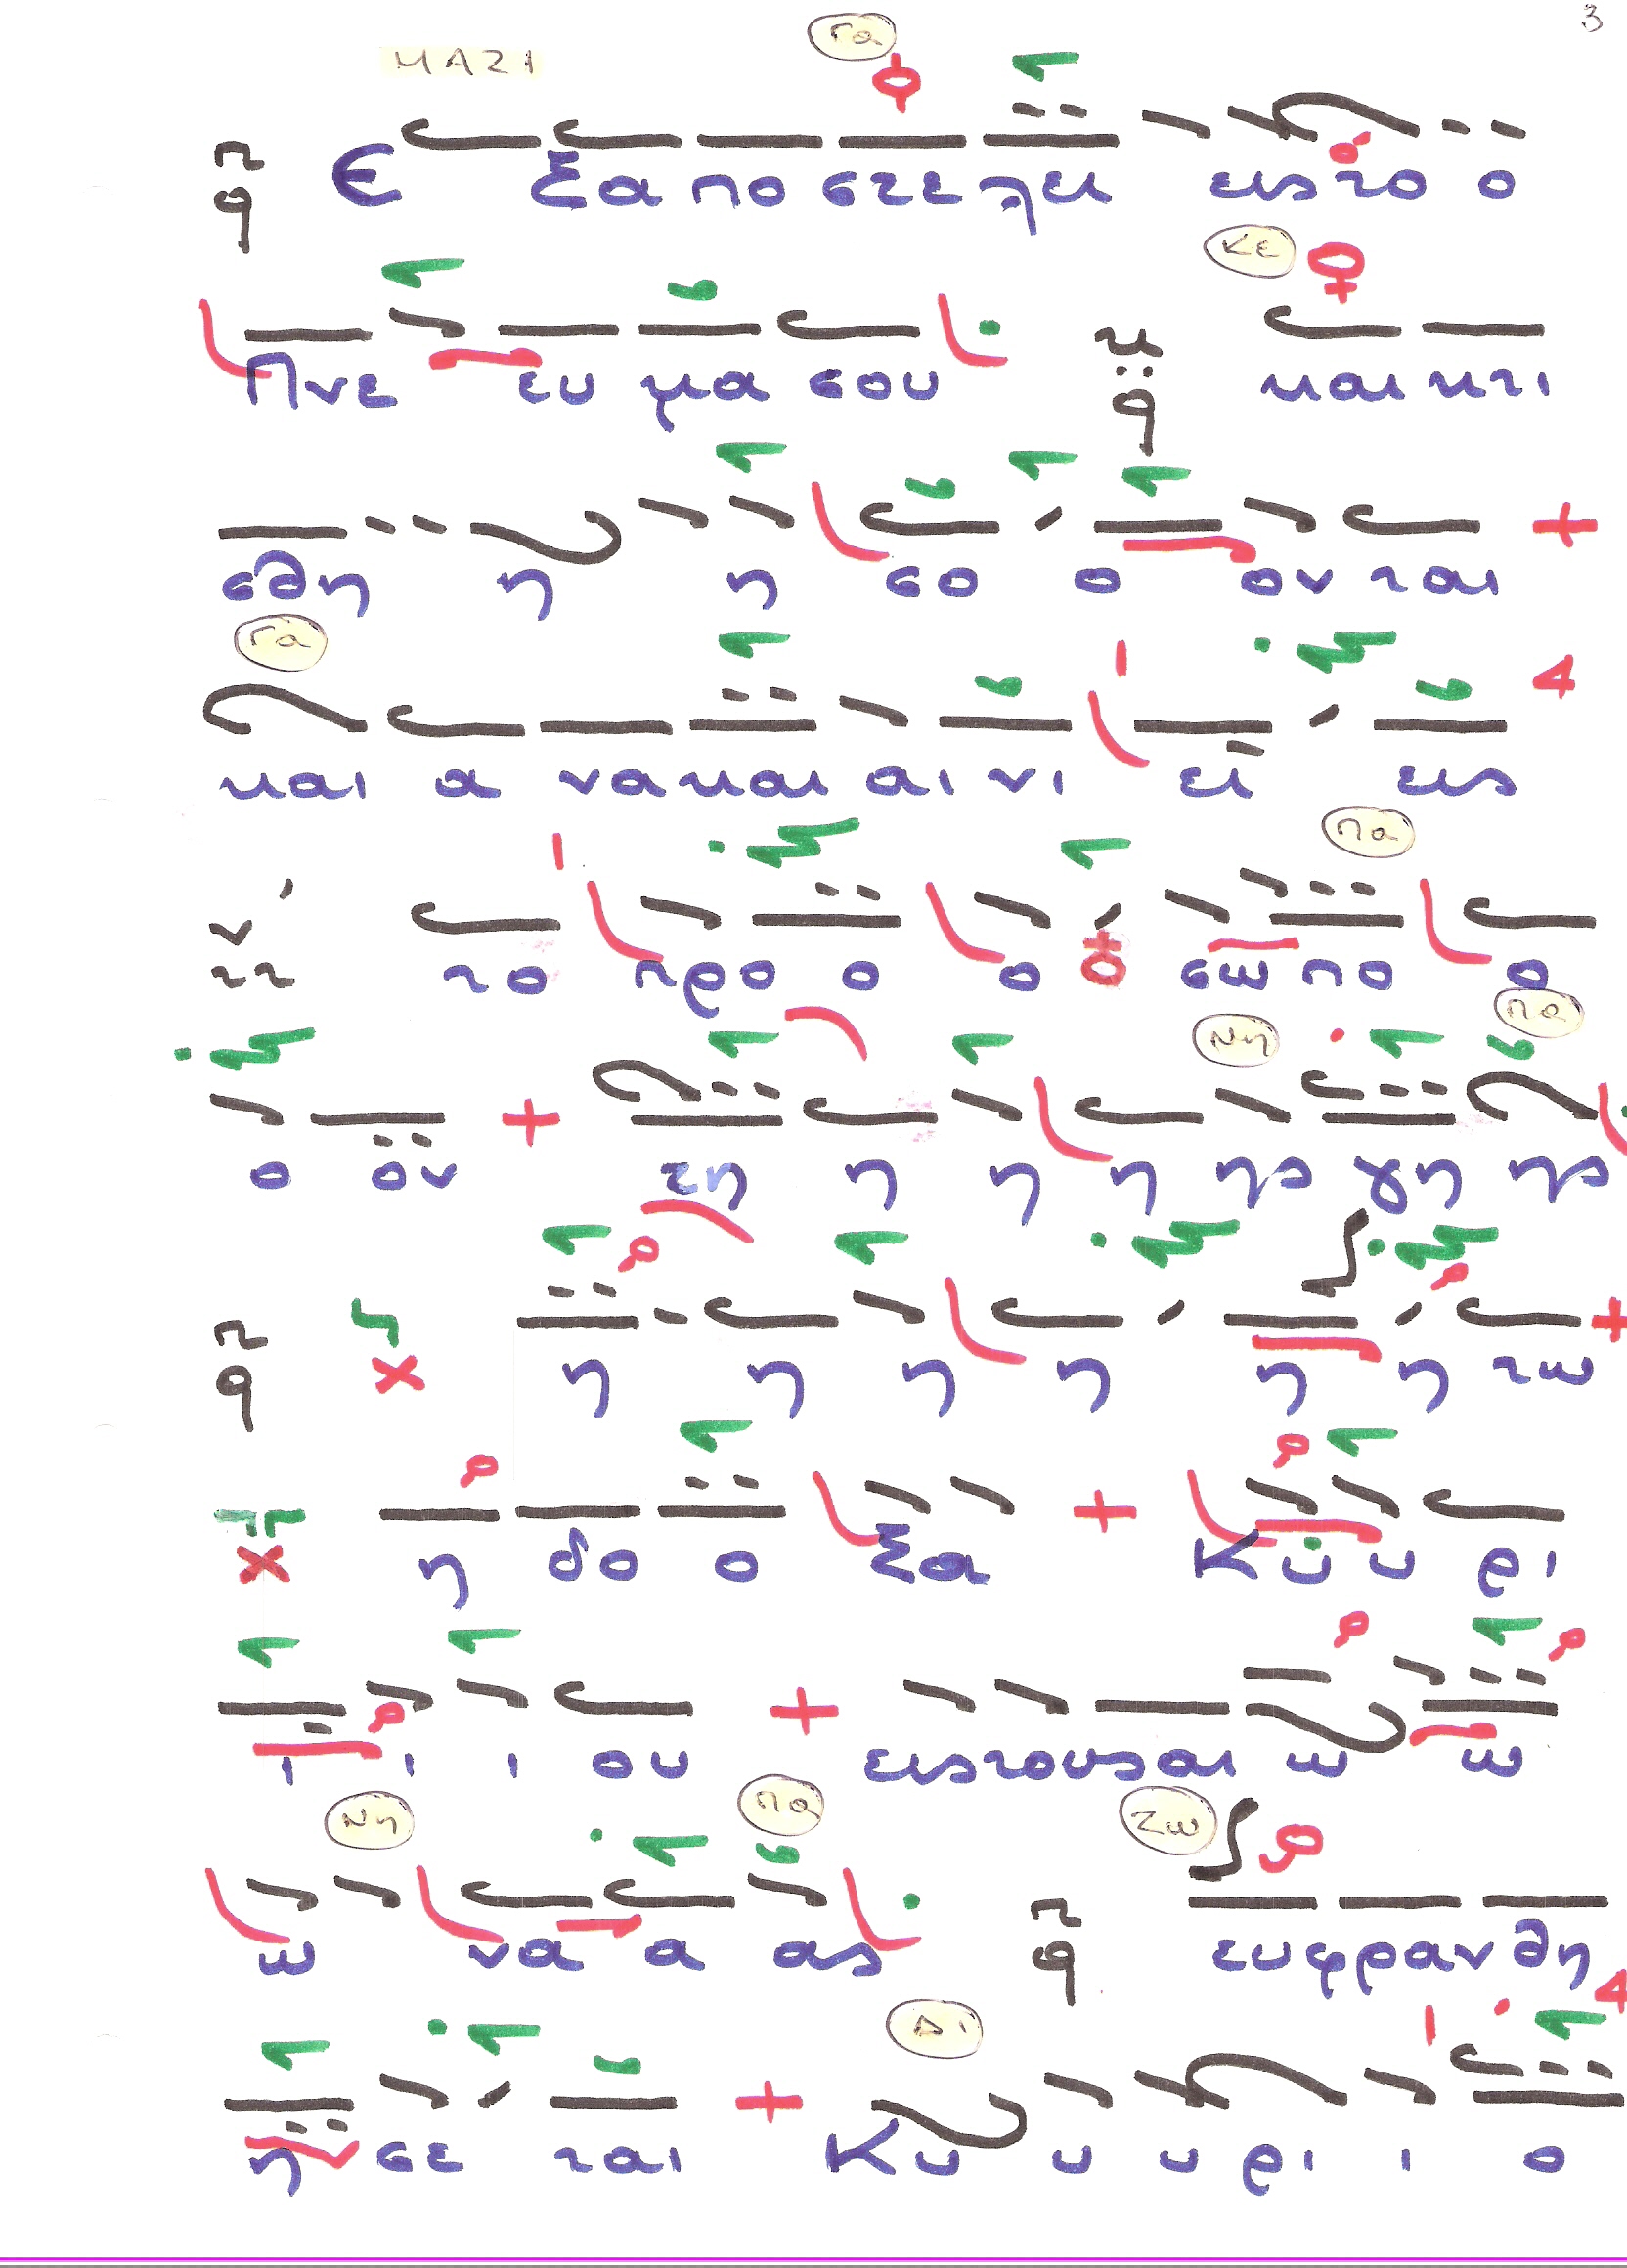 3
ΜΑΖΙ Γα
Ε ξα πο στε λει εις το ο
Κε
Πνε ευ μα σου και κτι
σθη η η σο ο ον ται
Γα
και α να και αι νι ει εις
Πα
το προ ο ο σω πο ο
Νη Πα
ο ον τη η η η ης γη ης
η η η η η η τω
η δο ο ξα Κυ υ ρι
ι ι ι ου εις τους αι ω ω
Νη Πα Ζω
ω να α ας ευφρανθη
Δι
η σε ται Κυ υ υ ρι ι ο